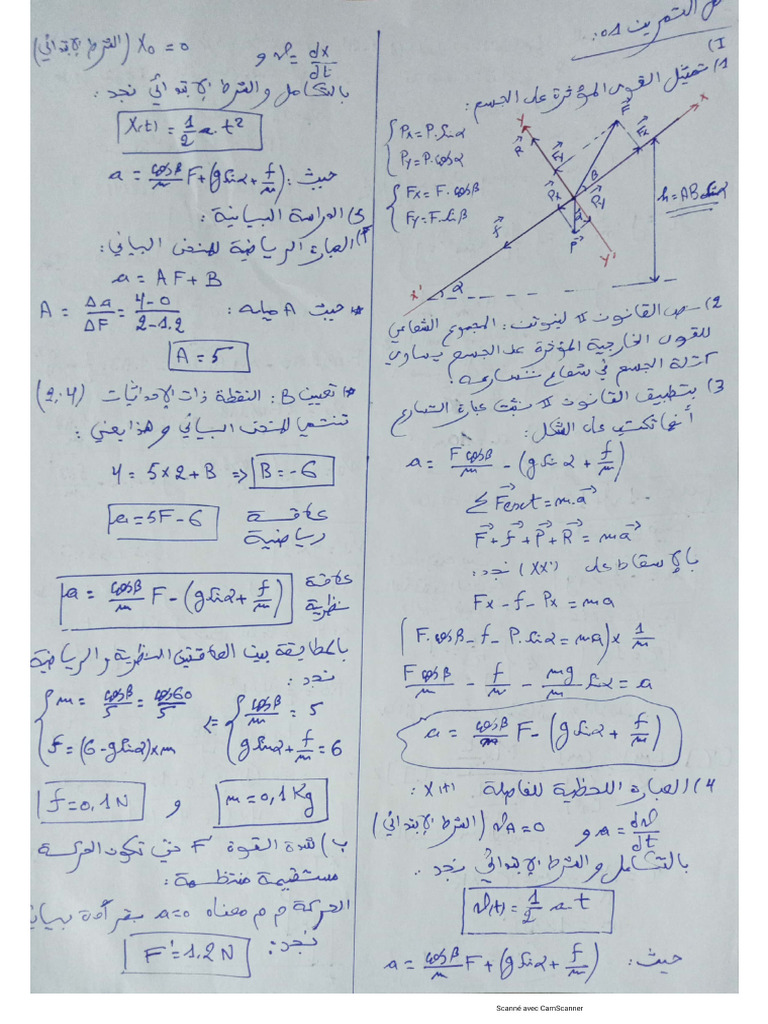 حل التمرين 01:
I)
1) تمثيل القوى المؤثرة على الجسم:
{ Px = P.sinα
Py = P.cosα
{ Fx = F.cosβ
Fy = F.sinβ
h = AB sinα
2) نص القانون II لنيوتن: المجموع الشعاعي
للقوى الخارجية المؤثرة على الجسم يساوي
كتلة الجسم في شعاع تسارعه.
3) بتطبيق القانون II نثبت عبارة التسارع
أنها تكتب على الشكل:
a = Fcosβ/m - (g sinα + f/m)
ΣF⃗ext = m.a⃗
F⃗ + f⃗ + P⃗ + R⃗ = ma⃗
بالإسقاط على (xx') نجد:
Fx - f - Px = ma
(F.cosβ - f - P.sinα = ma) x 1/m
Fcosβ/m - f/m - mg/m sinα = a
a = cosβ/m F - (g sinα + f/m)
4) العبارة اللحظية للفاصلة x(t):
a = dv/dt و vA = 0 (الشرط الإبتدائي)
بالتكامل والشرط الإبتدائي نجد:
v(t) = 1/2 a t
حيث: a = cosβ/m F + (g sinα + f/m)
v = dx/dt و x0 = 0 (الشرط الإبتدائي)
بالتكامل والشرط الإبتدائي نجد:
x(t) = 1/2 a.t²
حيث: a = cosβ/m F + (g sinα + f/m)
5) الدراسة البيانية:
أ) العبارة الرياضية للمنحنى البياني:
a = AF + B
* حيث A ميله: A = Δa/ΔF = 4-0/2-1.2
A = 5
* تعيين B: النقطة ذات الإحداثيات (2,4)
تنتمي للمنحنى البياني وهذا يعني:
4 = 5x2 + B => B = -6
a = 5F - 6 علاقة رياضية
a = cosβ/m F - (g sinα + f/m) علاقة نظرية
بالمطابقة بين العلاقتين النظرية والرياضية
نجد:
{ cosβ/m = 5 => { m = cosβ/5 = cos60/5
g sinα + f/m = 6 f = (6 - g sinα) x m
m = 0,1 Kg و f = 0,1 N
ب) شدة القوة F' حتى تكون الحركة
مستقيمة منتظمة:
الحركة م م معناه a = 0 بقراءة بيانية
نجد: F' = 1,2 N
Scanné avec CamScanner